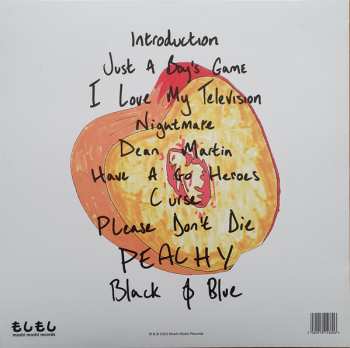 Introduction
Just A Boy's Game
I Love My Television
Nightmare
Dean Martin
Have A Go Heroes
Curse
Please Don't Die
PEACHY
Black & Blue
もしもし
moshi moshi records